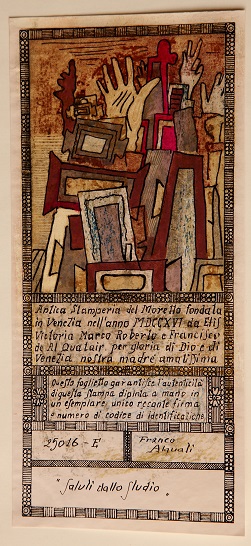 Antica Stamperia del Moretto fondata
in Venezia nell'anno MDCCXVI da Elis
Victoria Marco Roberto e Francisev
de Al Quatair per gloria di Dio e di
Venezia nostra madre amatissima
Questo foglietto garantisce l'autenticità
di questa stampa dipinta a mano in
un esemplare unico recante firma
e numero di codice di identificazione
25016-F
Franco
"Saluti dallo studio"